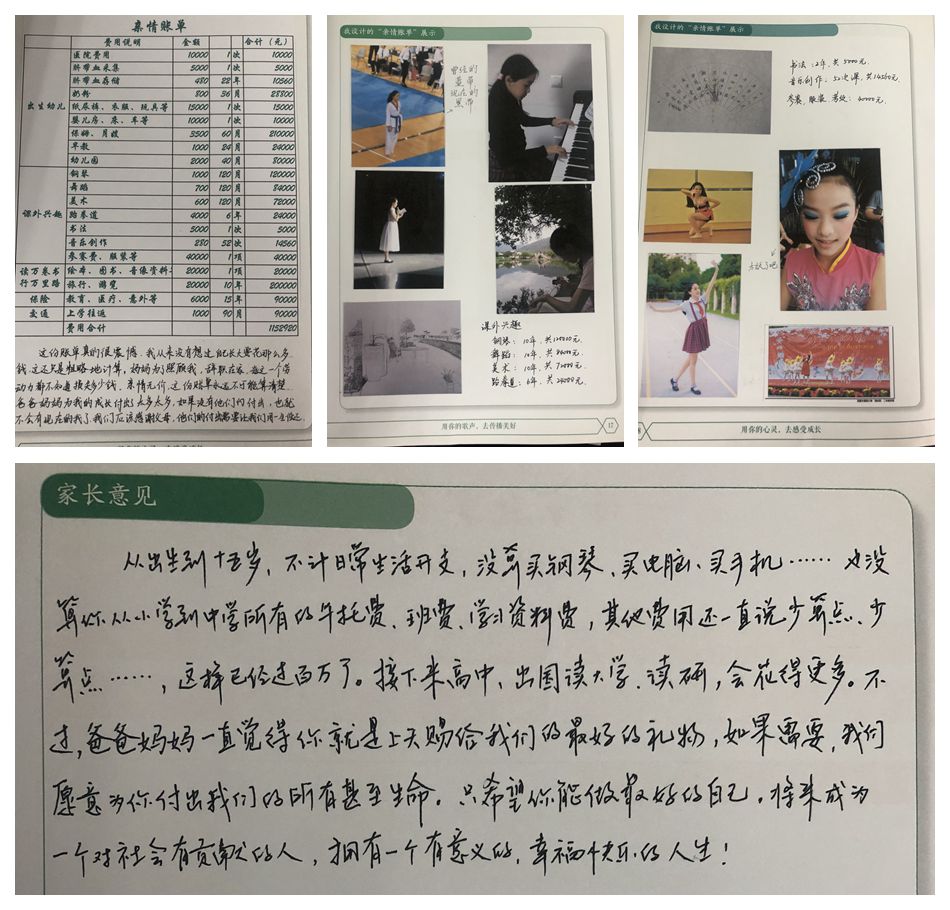 亲情账单
费用说明 金额 合计（元）
出生幼儿
医院费用 10000 1 次 10000
脐带血采集 5000 1 次 5000
脐带血存储 480 22 年 10560
奶粉 800 36 月 28800
纸尿裤、衣服、玩具等 15000 1 次 15000
婴儿房、床、车等 10000 1 次 10000
保姆、月嫂 3500 60 月 210000
早教 1000 24 月 24000
幼儿园 2000 40 月 80000
课外兴趣
钢琴 1000 120 月 120000
舞蹈 700 120 月 84000
美术 600 120 月 72000
跆拳道 4000 6 年 24000
书法 5000 1 次 5000
音乐创作 280 52 次 14560
参赛费、服装等 40000 1 项 40000
读万卷书 绘本、图书、音像资料 20000 1 项 20000
行万里路 旅行、游览 20000 10 年 200000
保险 教育、医疗、意外等 6000 15 年 90000
交通 上学往返 1000 90 月 90000
费用合计 1152920
这份账单真的很震撼，我从来没有想过自己长大要花那么多
钱，这还只是粗略地计算，妈妈为了照顾我，辞职在家，
动力都不知道损失多少钱。亲情无价，这份账单永远不可能算清楚，
爸爸妈妈为我的成长付出太多太多，如果没有他们的付出，也就
不会有现在的我了，我们应该感谢父母，他们的付出需要让我们用一生偿还
我设计的“亲情账单”展示
曾经的
蓝带
现在的
黑带
课外兴趣
钢琴：10年，共120000元
舞蹈：10年，共84000元
美术：10年，共72000元
跆拳道：6年，共24000元
用你的歌声，去传播美好
17
我设计的“亲情账单”展示
书法：12年，共5000元
音乐创作：52次课，共14560元
参赛、服装、考级：40000元
太妖了吧
用你的心灵，去感受成长
家长意见
从出生到十五岁，不计日常生活开支，没算买钢琴、买电脑、买手机……也没
算你从小学到中学所有的午托费、班费、学习资料费，其他费用还一直说少算点、少
算点……，这样已经过百万了。接下来高中、出国读大学、读研，会花得更多。不
过，爸爸妈妈一直觉得你就是上天赐给我们的最好的礼物，如果需要，我们
愿意为你付出我们的所有甚至生命。只希望你能做最好的自己，将来成为
一个对社会有贡献的人，拥有一个有意义的，幸福快乐的人生！